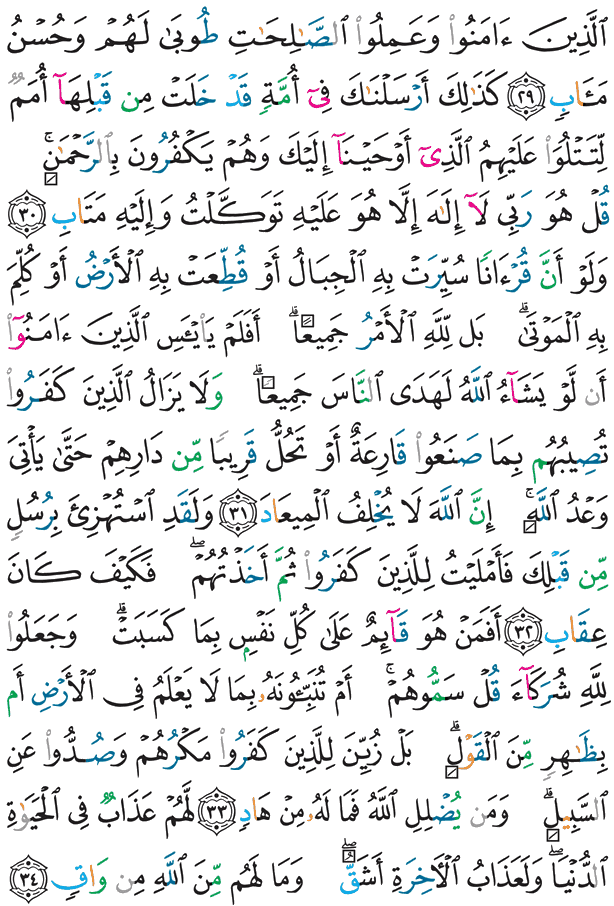 ٱلَّذِينَ ءَامَنُوا۟ وَعَمِلُوا۟ ٱلصَّـٰلِحَـٰتِ طُوبَىٰ لَهُمْ وَحُسْنُ
مَـَٔابٍ ٢٩ كَذَٰلِكَ أَرْسَلْنَـٰكَ فِىٓ أُمَّةٍ قَدْ خَلَتْ مِن قَبْلِهَآ أُمَمٌ
لِّتَتْلُوَا۟ عَلَيْهِمُ ٱلَّذِىٓ أَوْحَيْنَآ إِلَيْكَ وَهُمْ يَكْفُرُونَ بِٱلرَّحْمَـٰنِ ۚ
قُلْ هُوَ رَبِّى لَآ إِلَـٰهَ إِلَّا هُوَ عَلَيْهِ تَوَكَّلْتُ وَإِلَيْهِ مَتَابِ ٣٠
وَلَوْ أَنَّ قُرْءَانًا سُيِّرَتْ بِهِ ٱلْجِبَالُ أَوْ قُطِّعَتْ بِهِ ٱلْأَرْضُ أَوْ كُلِّمَ
بِهِ ٱلْمَوْتَىٰ ۗ بَل لِّلَّهِ ٱلْأَمْرُ جَمِيعًا ۗ أَفَلَمْ يَا۟يْـَٔسِ ٱلَّذِينَ ءَامَنُوٓا۟
أَن لَّوْ يَشَآءُ ٱللَّهُ لَهَدَى ٱلنَّاسَ جَمِيعًا ۗ وَلَا يَزَالُ ٱلَّذِينَ كَفَرُوا۟
تُصِيبُهُم بِمَا صَنَعُوا۟ قَارِعَةٌ أَوْ تَحُلُّ قَرِيبًا مِّن دَارِهِمْ حَتَّىٰ يَأْتِىَ
وَعْدُ ٱللَّهِ ۚ إِنَّ ٱللَّهَ لَا يُخْلِفُ ٱلْمِيعَادَ ٣١ وَلَقَدِ ٱسْتُهْزِئَ بِرُسُلٍ
مِّن قَبْلِكَ فَأَمْلَيْتُ لِلَّذِينَ كَفَرُوا۟ ثُمَّ أَخَذْتُهُمْ ۖ فَكَيْفَ كَانَ
عِقَابِ ٣٢ أَفَمَنْ هُوَ قَآئِمٌ عَلَىٰ كُلِّ نَفْسٍۭ بِمَا كَسَبَتْ ۗ وَجَعَلُوا۟
لِلَّهِ شُرَكَآءَ قُلْ سَمُّوهُمْ ۚ أَمْ تُنَبِّـُٔونَهُۥ بِمَا لَا يَعْلَمُ فِى ٱلْأَرْضِ أَم
بِظَـٰهِرٍ مِّنَ ٱلْقَوْلِ ۗ بَلْ زُيِّنَ لِلَّذِينَ كَفَرُوا۟ مَكْرُهُمْ وَصُدُّوا۟ عَنِ
ٱلسَّبِيلِ ۗ وَمَن يُضْلِلِ ٱللَّهُ فَمَا لَهُۥ مِنْ هَادٍ ٣٣ لَّهُمْ عَذَابٌ فِى ٱلْحَيَوٰةِ
ٱلدُّنْيَا ۖ وَلَعَذَابُ ٱلْـَٔاخِرَةِ أَشَقُّ ۖ وَمَا لَهُم مِّنَ ٱللَّهِ مِن وَاقٍ ٣٤